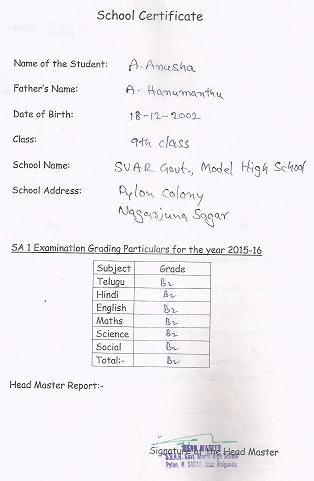 School Certificate
Name of the Student: A. Anusha
Father's Name: A. Hanumanthu
Date of Birth: 18-12-2002
Class: 9th class
School Name: SVAR Govt., Model High School
School Address: Pylon Colony
Nagarjuna Sagar
SA 1 Examination Grading Particulars for the year 2015-16
Subject Grade
Telugu B2
Hindi B2
English B2
Maths B2
Science B2
Social B2
Total:- B2
Head Master Report:-
Signature of the Head Master
HEAD MASTER
Govt. Model High School
Pylon, N. SAGAR, Dist: Nalgonda.